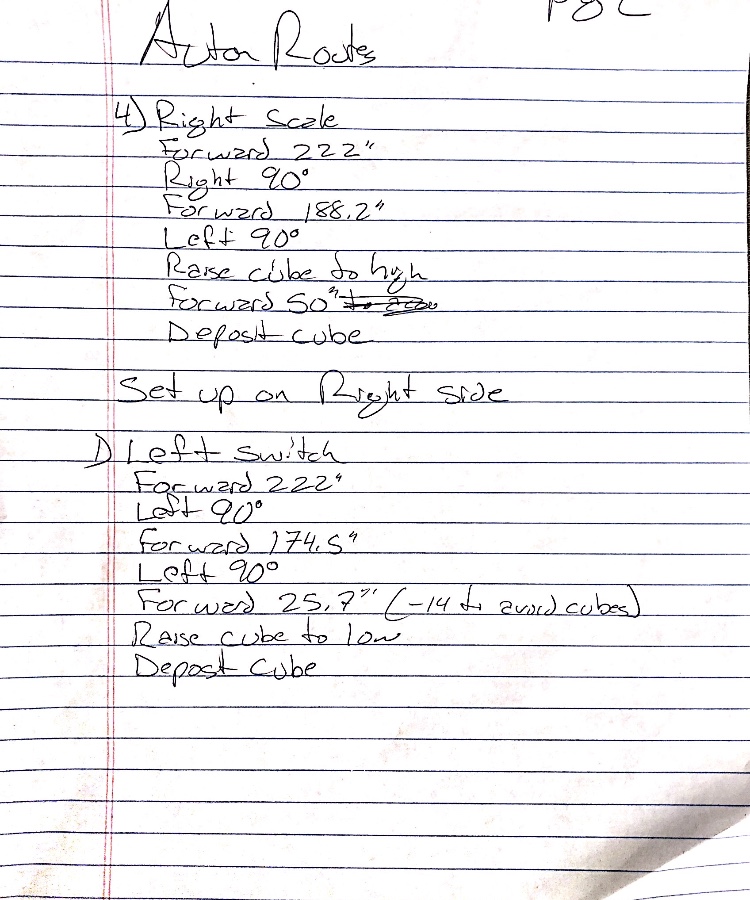 Pg 2
Auton Routes
4) Right Scale
Forward 222"
Right 90°
Forward 188.2"
Left 90°
Raise cube to high
Forward 50"
Deposit cube
Set up on Right side
1) Left switch
Forward 222"
Left 90°
Forward 174.5"
Left 90°
Forward 25.7" (-14 to avoid cubes)
Raise cube to low
Deposit Cube